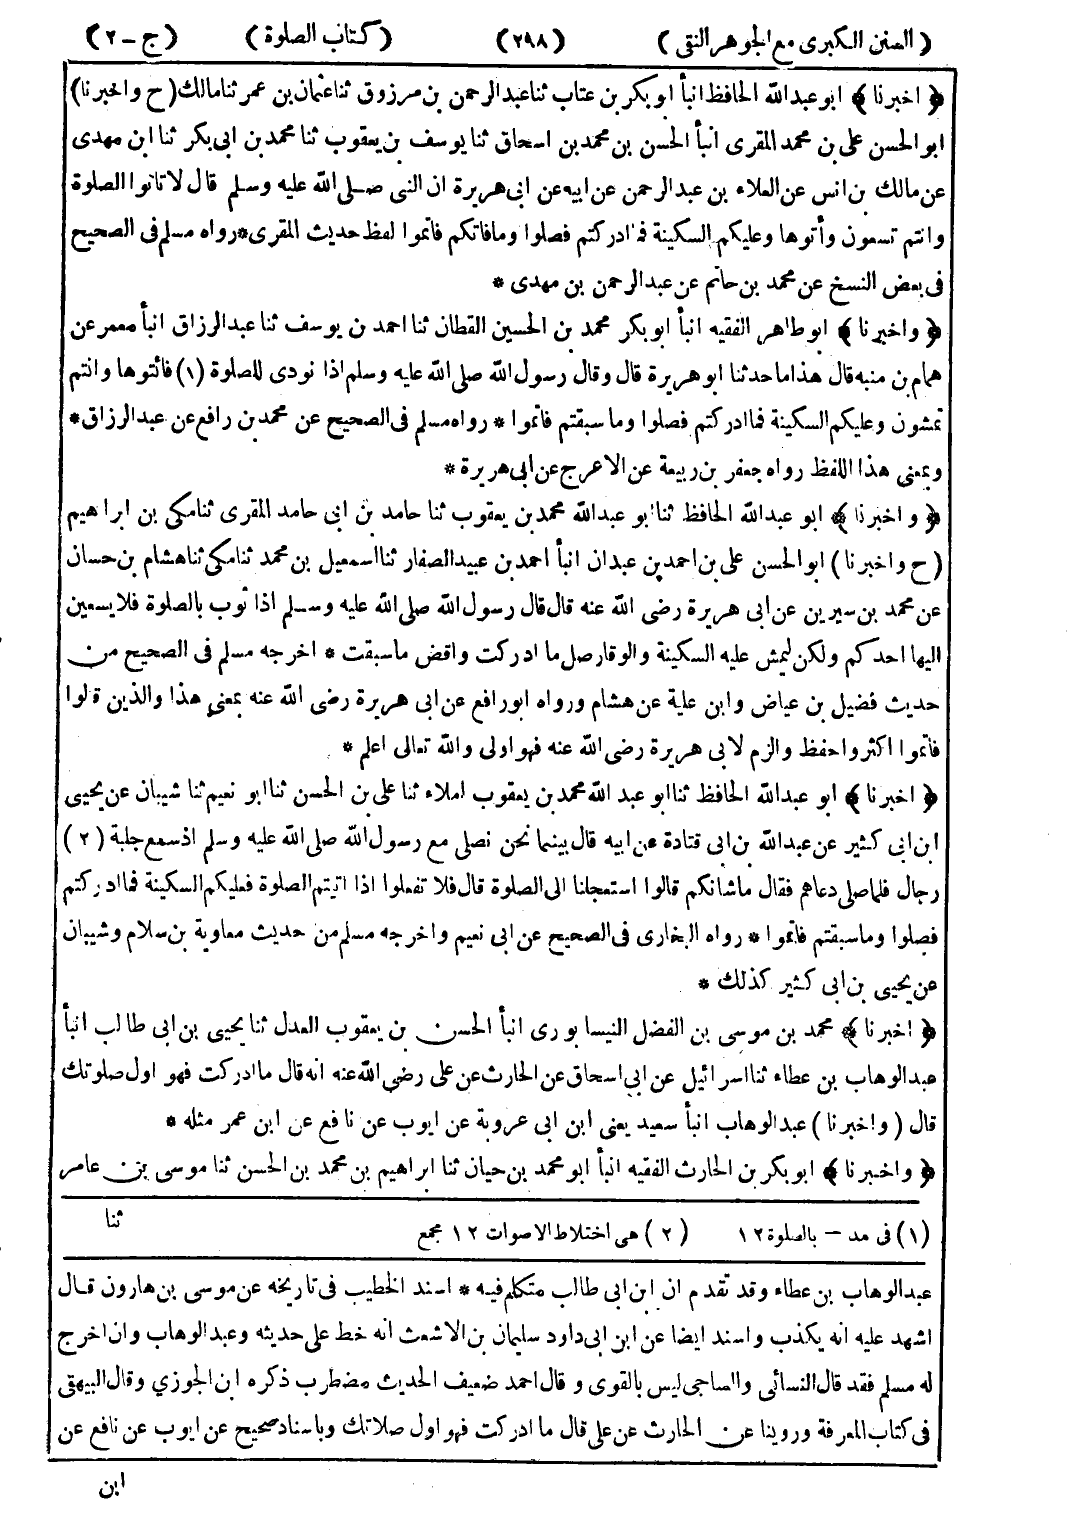 ( السنن الكبرى مع الجوهر النقى ) (٢٩٨) ( كتاب الصلوة ) ( ج - ٢ )
﴿ اخبرنا ﴾ ابو عبد الله الحافظ انبأ ابو بكر بن عتاب ثنا عبد الرحمن بن مرزوق ثنا عثمان بن عمر ثنا مالك ( ح واخبرنا )
ابو الحسن على بن محمد المقرى انبأ الحسن بن محمد بن اسحاق ثنا يوسف بن يعقوب ثنا محمد بن ابى بكر ثنا ابن مهدى
عن مالك بن انس عن العلاء بن عبد الرحمن عن ابيه عن ابى هريرة ان النبى صلى الله عليه وسلم قال لا تاتوا الصلوة
وانتم تسعون وأتوها وعليكم السكينة فما ادركتم فصلوا وما فاتكم فاتموا لفظ حديث المقرى * رواه مسلم فى الصحيح
فى بعض النسخ عن محمد بن حاتم عن عبد الرحمن بن مهدى *
﴿ واخبرنا ﴾ ابو طاهر الفقيه انبأ ابو بكر محمد بن الحسين القطان ثنا احمد بن يوسف ثنا عبد الرزاق انبأ معمر عن
همام بن منبه قال هذا ما حدثنا ابو هريرة قال وقال رسول الله صلى الله عليه وسلم اذا نودى للصلوة (١) فائتوها وانتم
تمشون وعليكم السكينة فما ادركتم فصلوا وما سبقتم فاتموا * رواه مسلم فى الصحيح عن محمد بن رافع عن عبد الرزاق *
وبمعنى هذا اللفظ رواه جعفر بن ربيعة عن الاعرج عن ابى هريرة *
﴿ واخبرنا ﴾ ابو عبد الله الحافظ ثنا ابو عبد الله محمد بن يعقوب ثنا حامد بن ابى حامد المقرى ثنا مكى بن ابراهيم
( ح واخبرنا ) ابو الحسن على بن احمد بن عبدان انبأ احمد بن عبيد الصفار ثنا اسمعيل بن محمد ثنا مكى ثنا هشام بن حسان
عن محمد بن سيرين عن ابى هريرة رضى الله عنه قال قال رسول الله صلى الله عليه وسلم اذا ثوب بالصلوة فلا يسعين
اليها احدكم ولكن ليمش عليه السكينة والوقار صل ما ادركت واقض ما سبقت * اخرجه مسلم فى الصحيح من
حديث فضيل بن عياض وابن علية عن هشام ورواه ابو رافع عن ابى هريرة رضى الله عنه بمعنى هذا والذين قالوا
فاتموا اكثر واحفظ والزم لابى هريرة رضى الله عنه فهو اولى والله تعالى اعلم *
﴿ اخبرنا ﴾ ابو عبد الله الحافظ ثنا ابو عبد الله محمد بن يعقوب املاء ثنا على بن الحسن ثنا ابو نعيم ثنا شيبان عن يحيى
ابن ابى كثير عن عبد الله بن ابى قتادة عن ابيه قال بينما نحن نصلى مع رسول الله صلى الله عليه وسلم اذ سمع جلبة (٢)
رجال فلما صلى دعاهم فقال ما شانكم قالوا استعجلنا الى الصلوة قال فلا تفعلوا اذا اتيتم الصلوة فعليكم السكينة فما ادركتم
فصلوا وما سبقتم فاتموا * رواه البخارى فى الصحيح عن ابى نعيم واخرجه مسلم من حديث معاوية بن سلام وشيبان
عن يحيى بن ابى كثير كذلك *
﴿ اخبرنا ﴾ محمد بن موسى بن الفضل النيسابورى انبأ الحسن بن يعقوب العدل ثنا يحيى بن ابى طالب انبأ
عبد الوهاب بن عطاء ثنا اسرائيل عن ابى اسحاق عن الحارث عن على رضى الله عنه انه قال ما ادركت فهو اول صلوتك
قال ( واخبرنا ) عبد الوهاب انبأ سعيد يعنى ابن ابى عروبة عن ايوب عن نافع عن ابن عمر مثله *
﴿ واخبرنا ﴾ ابو بكر بن الحارث الفقيه انبأ ابو محمد بن حيان ثنا ابراهيم بن محمد بن الحسن ثنا موسى بن عامر
ثنا
(١) فى مد - بالصلوة ١٢ (٢) هى اختلاط الاصوات ١٢ مجمع
عبد الوهاب بن عطاء وقد تقدم ان ابن ابى طالب متكلم فيه * اسند الخطيب فى تاريخه عن موسى بن هارون قال
اشهد عليه انه يكذب واسند ايضا عن ابن ابى داود سليمان بن الاشعث انه خط على حديثه وعبد الوهاب وان اخرج
له مسلم فقد قال النسائى والساجى ليس بالقوى وقال احمد ضعيف الحديث مضطرب ذكره ابن الجوزي وقال البيهقى
فى كتاب المعرفة وروينا عن الحارث عن على قال ما ادركت فهو اول صلاتك وباسناد صحيح عن ايوب عن نافع عن
ابن